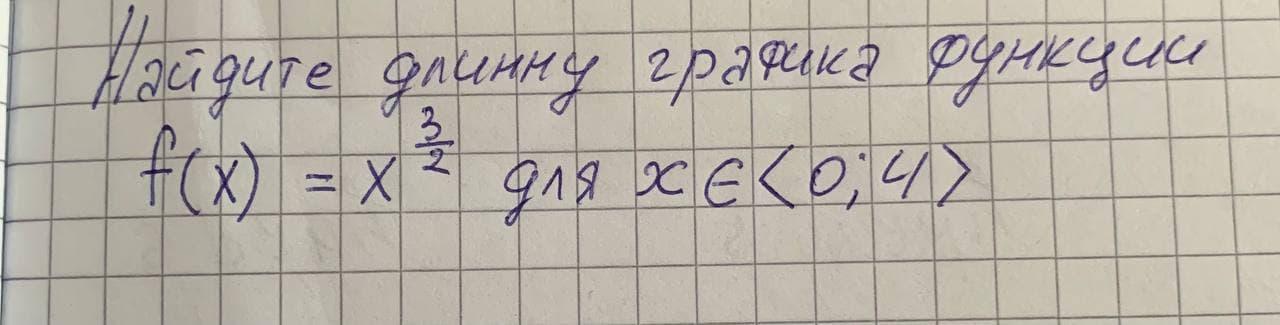 Найдите длинну графика функции
f(x) = x^{3/2} для x ∈ <0; 4>